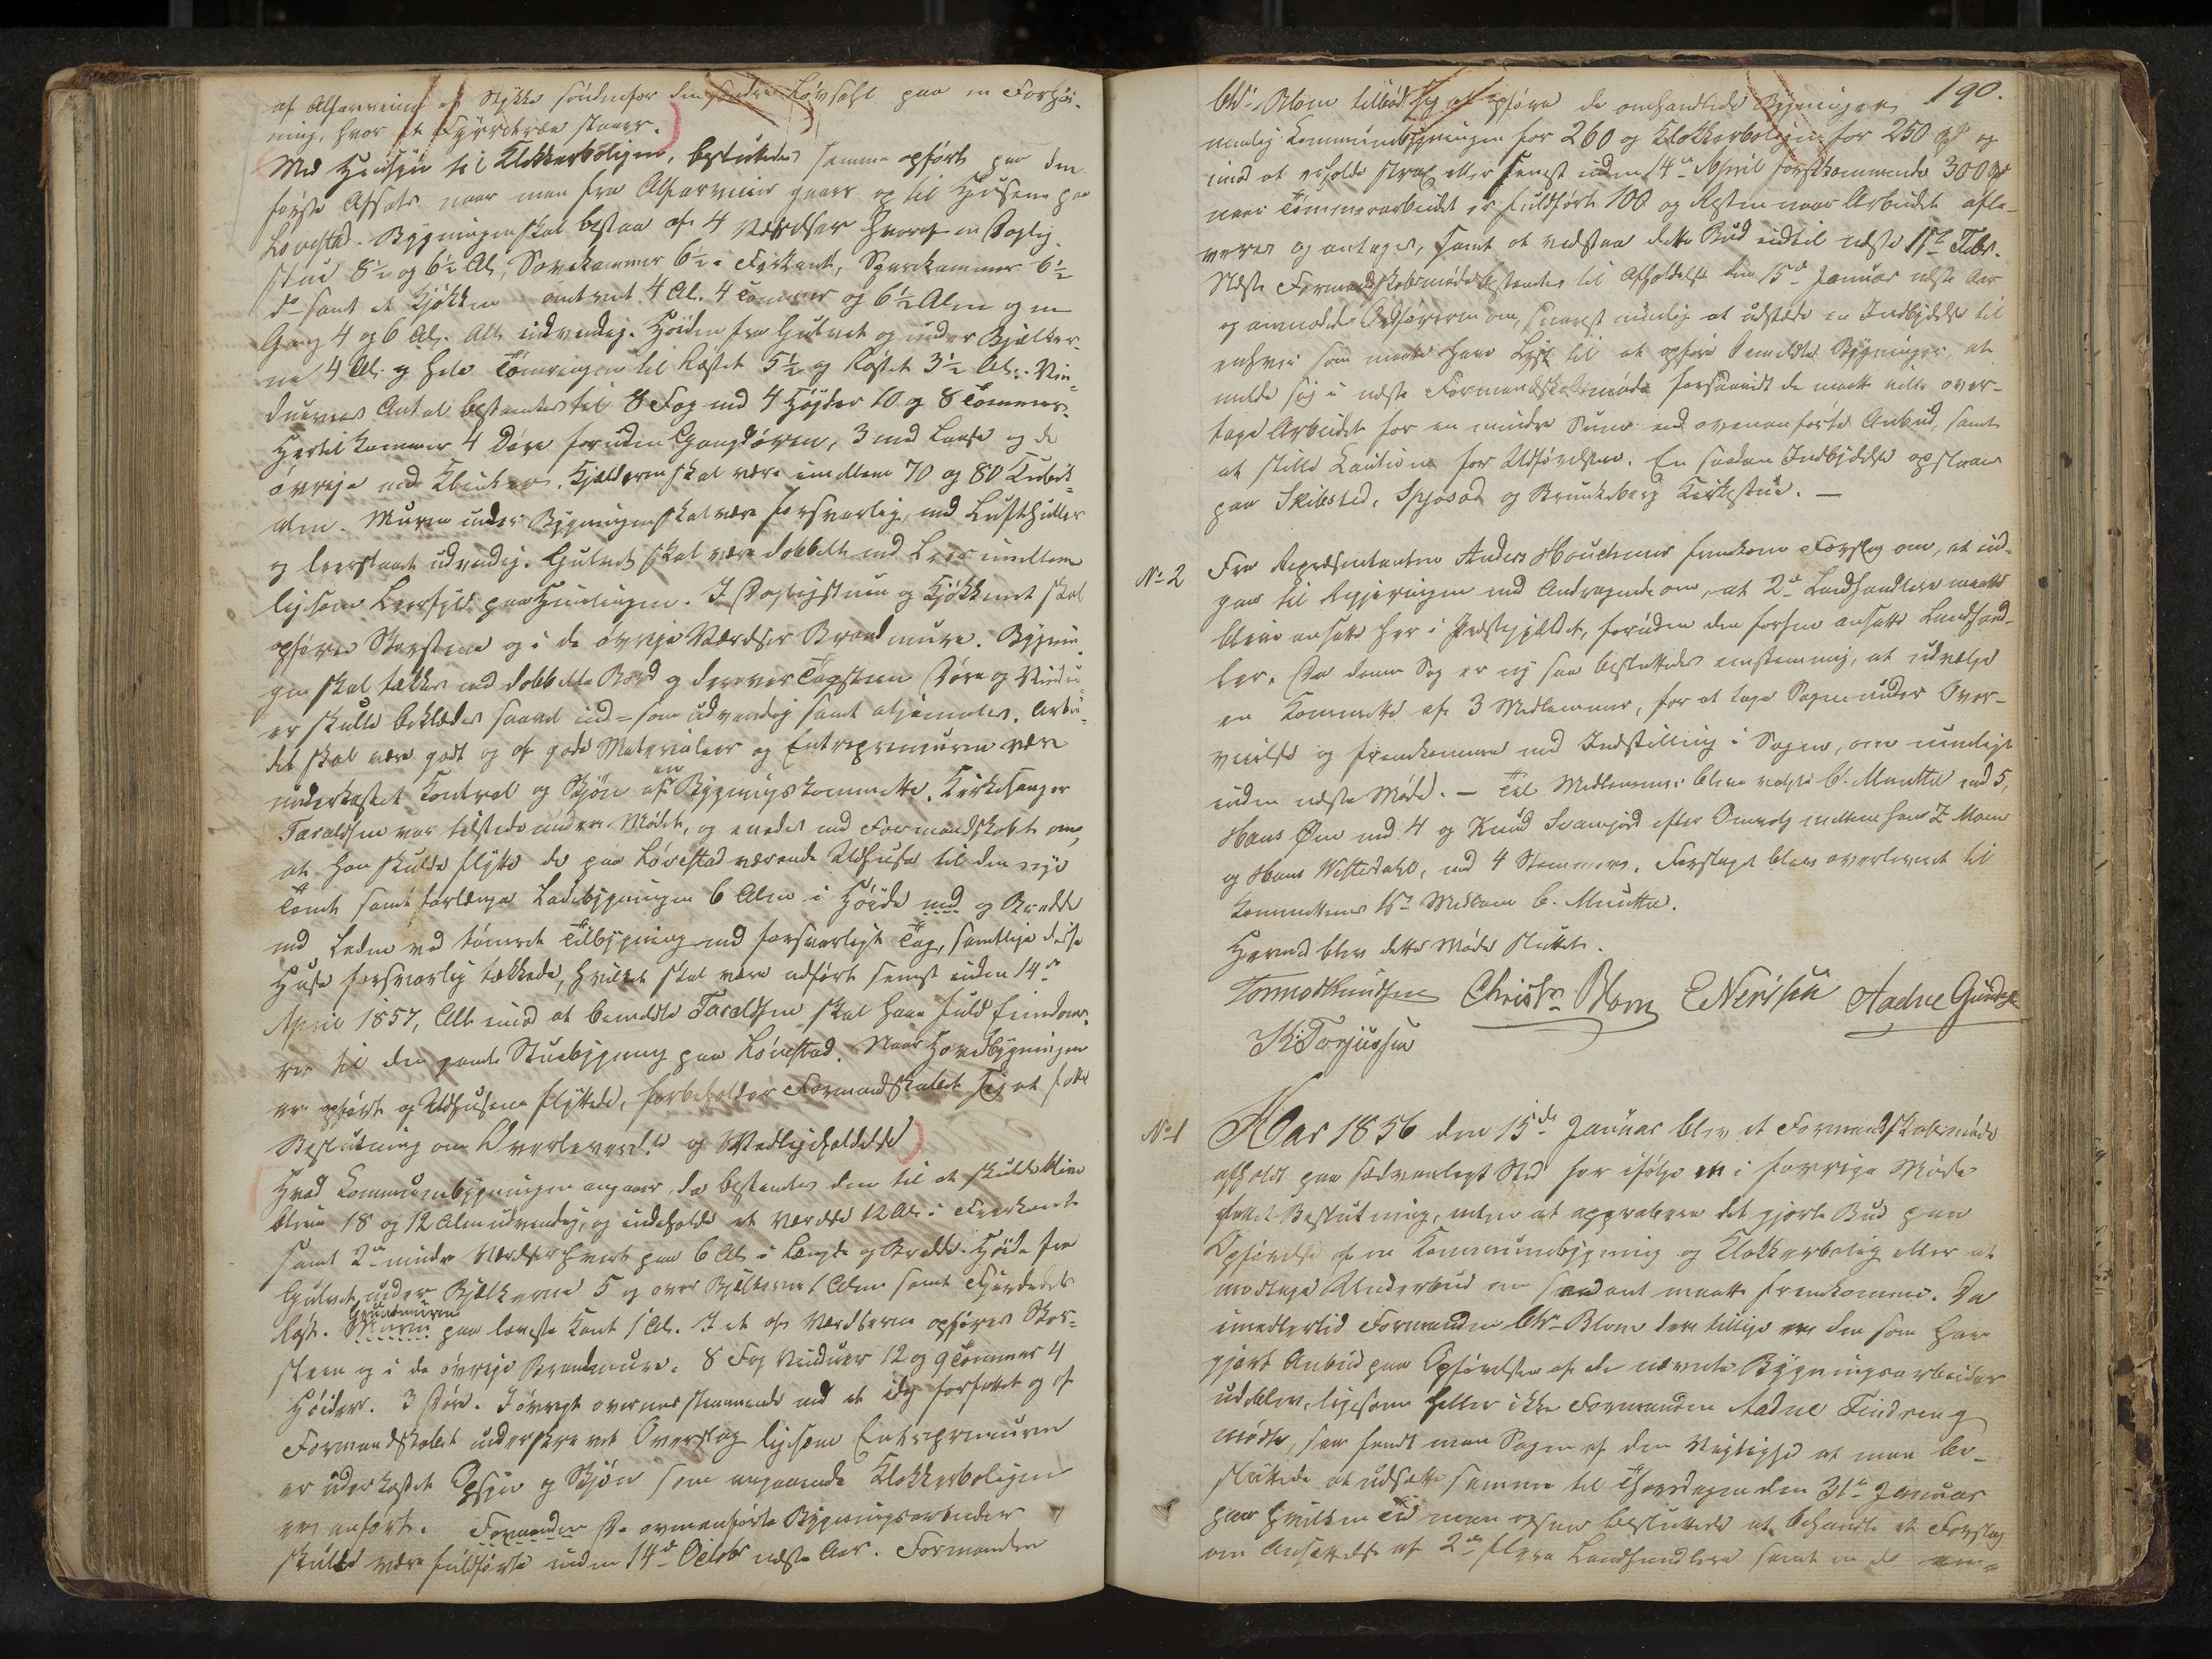 af Alfarveien et Stykke søndenfor den søndre Løvsahl paa en Forhøi-
ning, hvor et Fyrretræe staaer.
Med Hensyn til Klokkerboligen, besluttedes samme opført paa den
første Afsats naar man fra Alfarveien gaaer op til Husene paa
Lovestad. Bygningen skal bestaa af 4 Værelser hvoraf en Daglig-
stue 8½ og 6½ Al, Sovekammer 6½ i Firkant, Spisekammer 6½
do samt et Kjøkken omtrent 4 Al. 4 Tommer og 6½ Alen og en
Gang 4 og 6 Al. Alt udvendig. Høiden fra Gulvet og under Bjælker-
ne 4 Al. og hele Tømringen til Røstet 5½ og Røstet 3½ Al. Vin-
duernes Antal bestemtes til 8 Fag med 4 Høider 10 og 8 Tommer.
Hertil kommer 4 Døre foruden Gangdøren, 3 med Laase og de
øvrige med Klinker. Kjælderen skal være imellem 70 og 80 Kubik-
alen. Muren under Bygningen skal være forsvarlig, med Lufthuller
og leerslaaet udvendig. Gulvet skal være dobbelt med Leer imellem
ligesom Leerfyld paa Himlingen. I Dagligstuen og Kjøkkenet skal
opføres Skorstene og i de øvrige Værelser Brandmure. Bygnin-
gen skal tækkes med dobbelte Bord og derover Tagsteen Døre og Vindu-
er skulle beklædes saavel ind- som udvendig samt oljemales. Arbei-
det skal være godt og af gode Materialier og Entrepreneuren være
underkastet Kontrol og Skjøn af en Bygningskommitte. Kirkesanger
Taraldsen var tilstede under Mødet, og enedes med Formandskabet om,
at han skulde flytte de paa Lovestad værende Udhuse til den nye
Tomt samt forlænge Ladebygningen 6 Alen i Høide med og Bredde
med Laden ved tømret Tilbygning med forsvarligt Tag, samtlige disse
Huse forsvarlig tækkede, hvilket skal være udført senest inden 14de
April 1857, Alt imod at bemeldte Taraldsen skal have fuld Eiendoms-
ret til den gamle Stuebygning paa Lovestad. Naar Hovedbygningen
er opført og Udhusene flyttede, forbeholder Formandskabet sig at fatte
Beslutning om Overleverelse og Vedligeholdelse
Hvad Kommunebygningen angaaer, da bestemtes den til at skulde blive
18 og 12 Alen udvendig, og indeholde et Værelse 12 Al. i Firkant
samt 2de mindre Værelser hvert paa 6 Al. i Længde og Bredde. Høide fra
Gulvet under Bjælkerne 5 og over Bjælkerne 1 Alen samt
Røst. Grundmuren paa laveste Kant 1 Al. I et af Værelserne opføres Skor-
steen og i de øvrige Brandmure. 8 Fag Vinduer 12 og 9 Tommer 4
Høider. 3 Døre. I øvrigt overensstemmende med et idag forfattet og af
Formandskabet underskrevet Overslag ligesom Entrepreneuren
er underkastet Opsyn og Skjøn som angaaende Klokkerboligen
er anført. Formanden De ovenanførte Bygningsarbeider
skulle være fuldførte inden 14de Octobr næste Aar. Formanden
190.
Chr. Blom tilbød sig at opføre de omhandlede Bygninger
nemlig Kommunebygningen for 260 og Klokkerboligen for 250 Spd og
imod at erholde strax eller senest inden 14de April førstkommende 300 Spd
naar Tømmerarbeidet er fuldført 100 og Resten naar Arbeidet afle-
veres og antages, samt at vedstaa dette Bud indtil næste 15de Febr.
Næste Formandskabsmøde bestemtes til Afholdelse den 15de Januar næste Aar
og anmodede Ordføreren om, snarest muelig at udstede en Indbydelse til
enhver som maatte have Lyst til at opføre bemeldte Bygninger at
melde sig i næste Formandskabsmøde forsaavidt de maatte ville over-
tage Arbeidet for en mindre Sum end ovenanførte Anbud, samt
at stille Kaution for Udførelsen. En saadan Indbydelse opslaaes
paa Skibsted, Spjosod og Brunkeberg Kirkestue. —
No 2 Fra Repræsentanten Anders Houchnes fremkom Forslag om, at ind-
gaae til Regjeringen med Andragende om, at 2de Landhandlere maatte
blive ansatte her i Præstegjældet, foruden den forhen ansatte Landhand-
ler. Da denne Sag er ny saa besluttedes eenstemmig, at udvælge
en Kommitte af 3 Medlemmer, for at tage Sagen under Over-
veielse og fremkomme med Indstilling i Sagen, om mueligt
inden næste Møde. — Til Medlemmer bleve valgte C. Mantta med 5,
Hans Øen med 4 og Knud Svanejord efter Omvalg mellem ham
og Hans Vesterdahl, med 4 Stemmer. Forslaget blev overleveret til
Kommitteens 1ste Medlem C. Muntte.
Hermed blev dette Møde sluttet.
Tormod Knudsen Christn Blom E Nerisen Aadne Gunds
K: Torjussen
No 1 Aar 1856 den 15de Januar blev et Formandskabsmøde
afholdt paa sædvanligt Sted her ifølge en i forrige Møde
fattet Beslutning, enten at approbere det gjorte Bud paa
Opførelse af en Kommunebygning og Klokkerbolig eller at
modtage Underbud om saadant maatte fremkomme. Da
imidlertid Formanden Chr. Blom der tillige er den som har
gjort Anbud paa Opførelsen af de nævnte Bygningsarbeider
udeblev, ligesom heller ikke Formanden Aadne Findreng
mødte, saa fandt man Sagen af den Vigtighed at man be-
sluttede at udsætte samme til Thorsdagen den 31te Januar
paa hvilken Tid man ogsaa besluttede at behandle et Forslag
om Ansættelse af 2de flere Landhandlere samt en deel